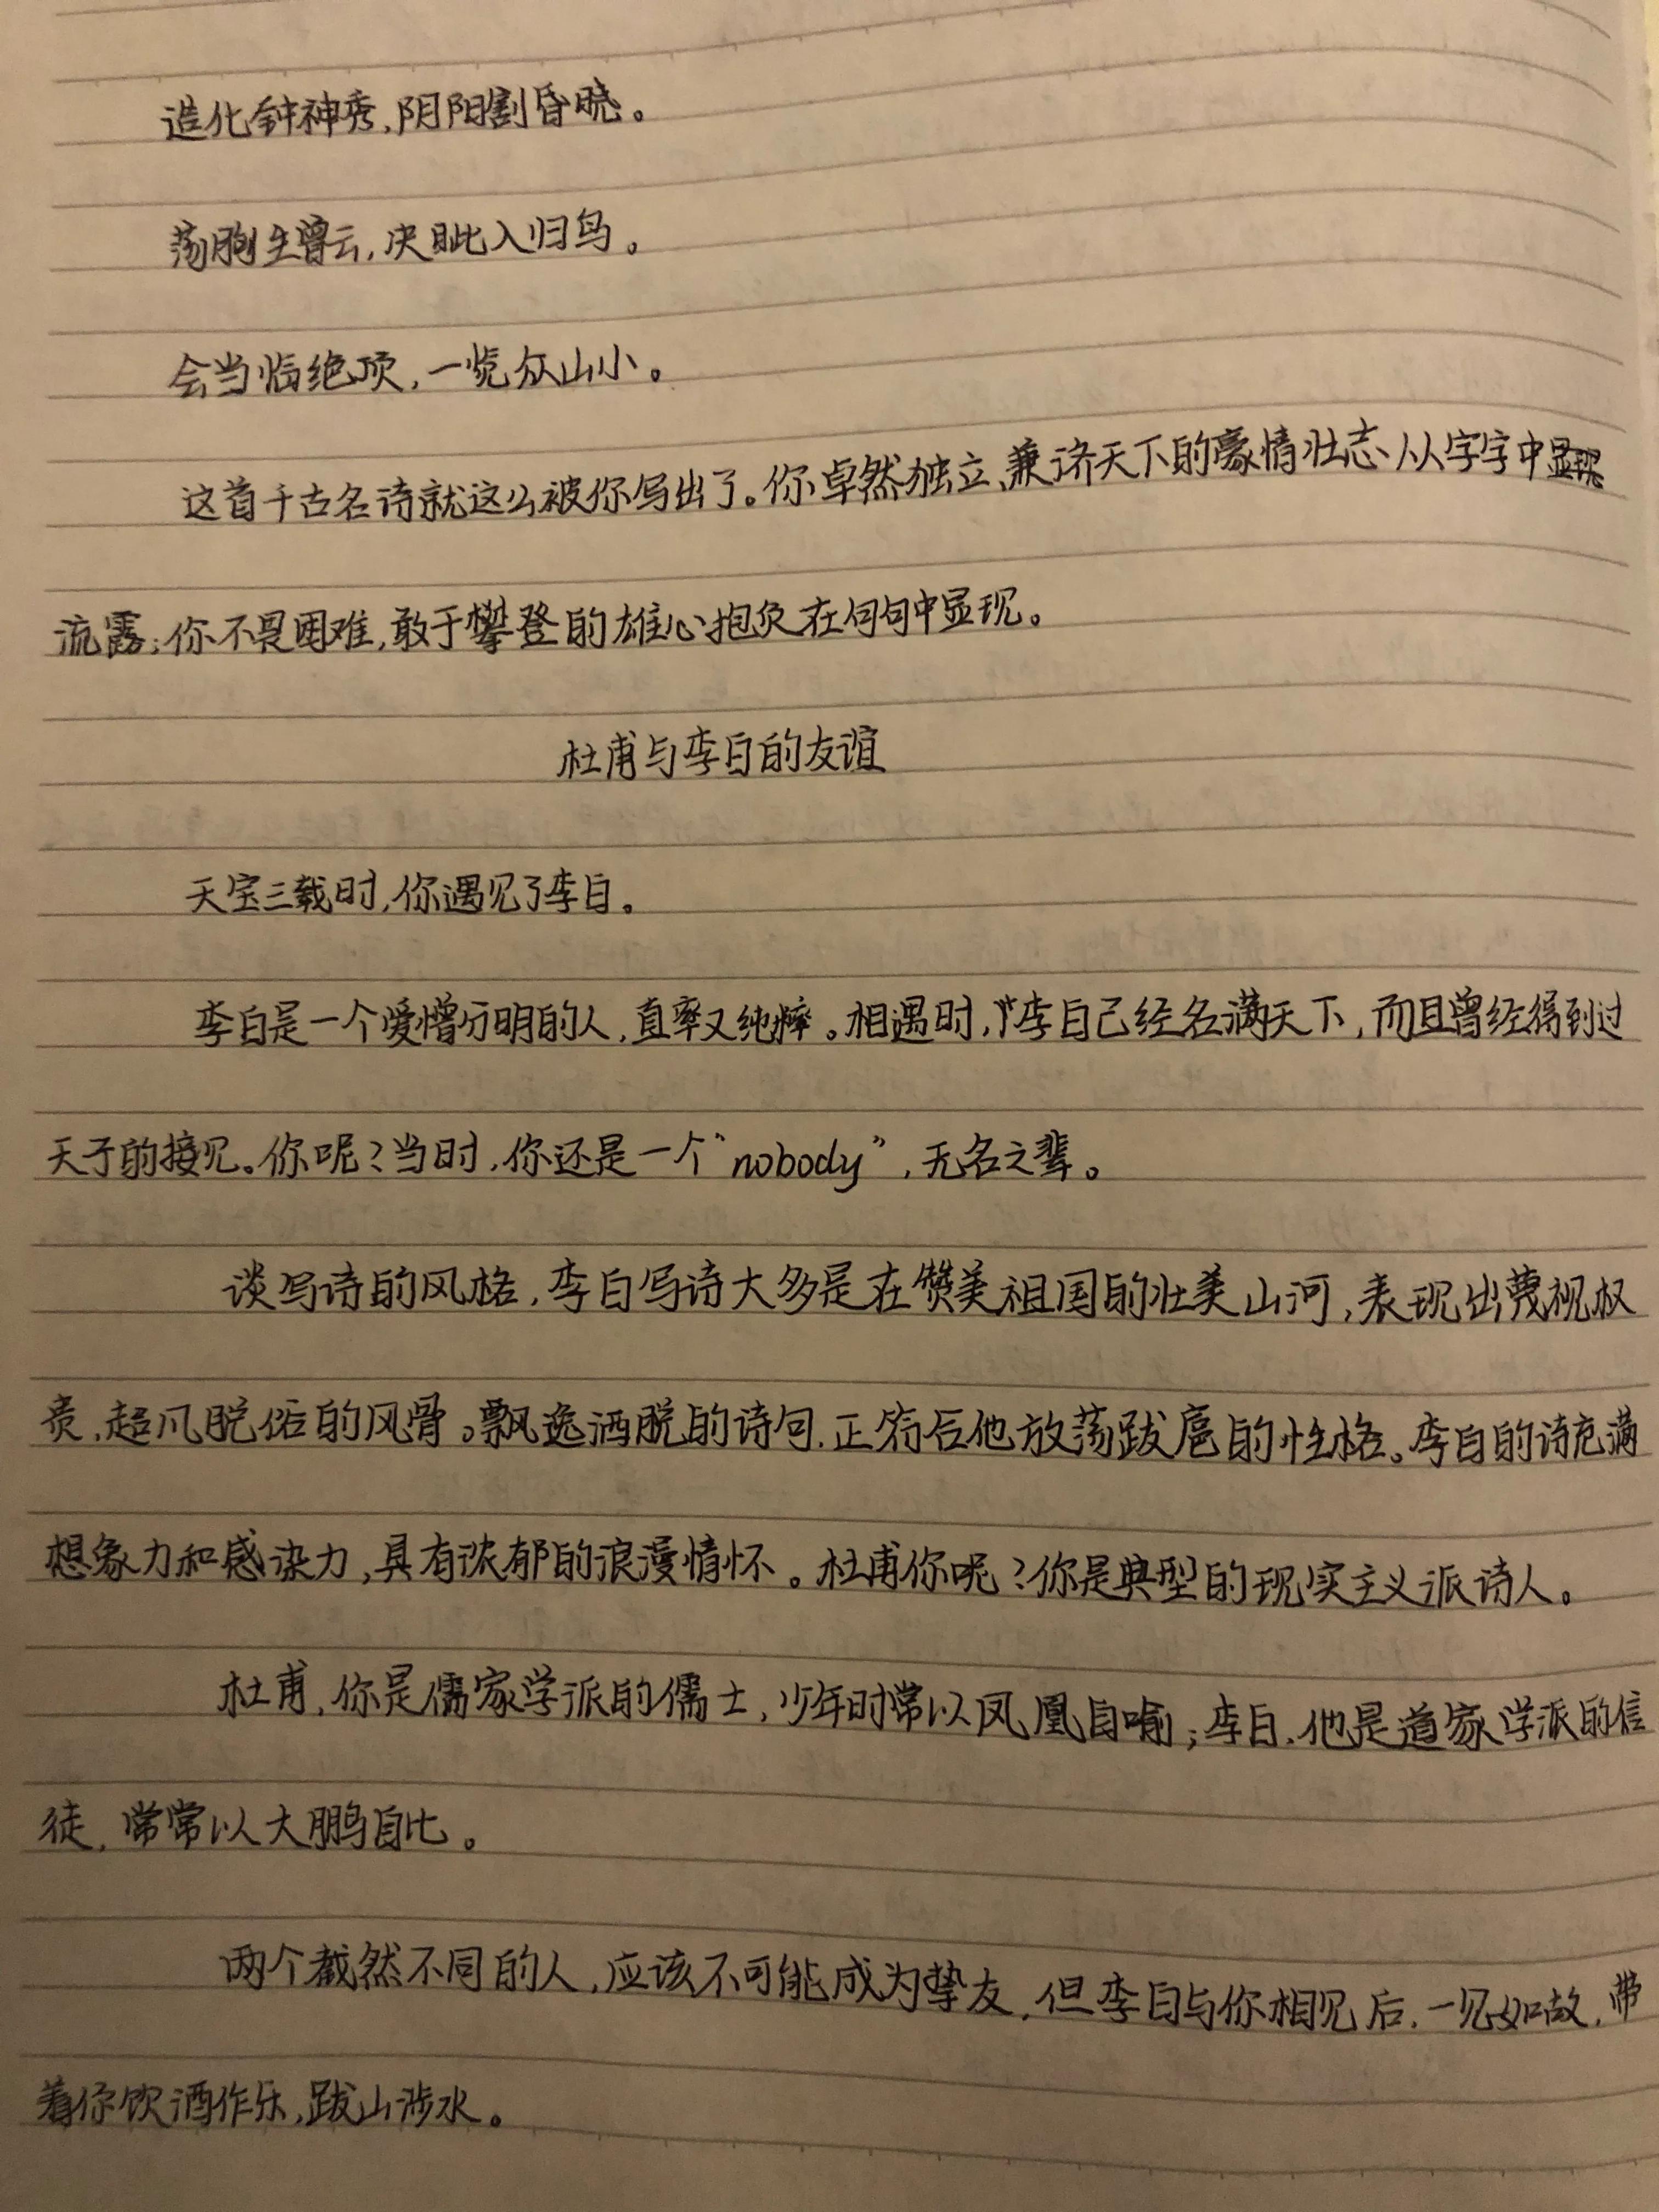 造化钟神秀,阴阳割昏晓。
荡胸生曾云,决眦入归鸟。
会当临绝顶,一览众山小。
这首千古名诗就这么被你写出了。你卓然独立、兼济天下的豪情壮志从字字中
流露;你不畏困难,敢于攀登的雄心抱负在句句中显现。
杜甫与李白的友谊
天宝三载时,你遇见了李白。
李白是一个爱憎分明的人,直率又纯粹。相遇时,李白已经名满天下,而且曾经得到过
天子的接见。你呢?当时,你还是一个“nobody”,无名之辈。
谈写诗的风格,李白写诗大多是在赞美祖国的壮美山河,表现出蔑视权
贵、超凡脱俗的风骨。飘逸洒脱的诗句,正符合他放荡跋扈的性格。李白的诗充满
想象力和感染力,具有浓郁的浪漫情怀。杜甫你呢?你是典型的现实主义派诗人。
杜甫,你是儒家学派的儒士,少年时常以凤凰自喻;李白,他是道家学派的信
徒,常常以大鹏自比。
两个截然不同的人,应该不可能成为挚友,但李白与你相见后,一见如故,带
着你饮酒作乐,跋山涉水。